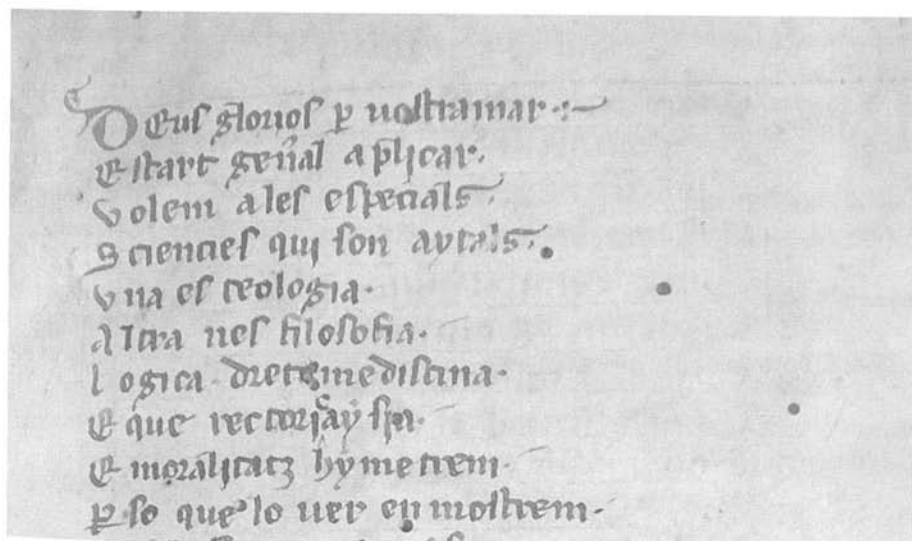 Deus glorios ꝑ uostramar·
Estart gen̄al a pl̄icar·
Volem ales especials·
Sciencies qui son aytals·
Vna es teologia·
Altra nes filosofia·
Logica· dretz medistina·
E que rectoricay sia·
E moralitatz hy metrem·
ꝑ so que lo uer en mostrem·